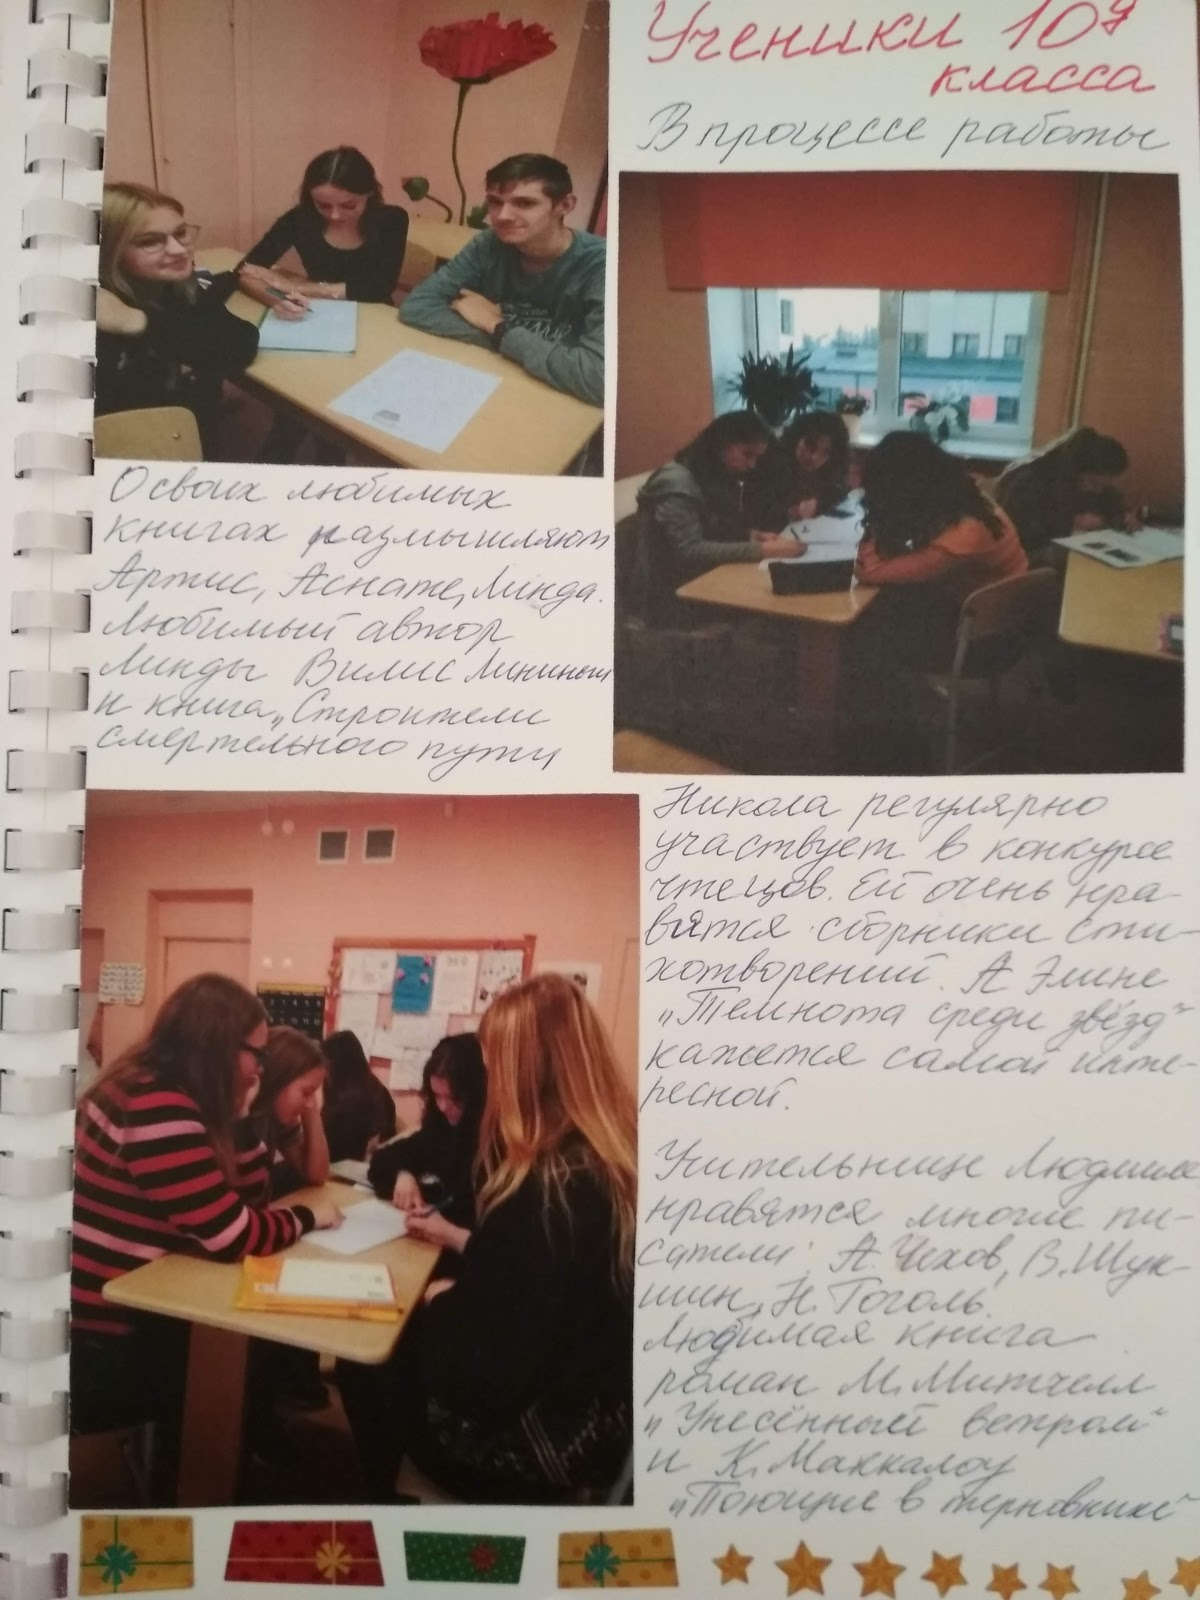 Ученики 10g
класса
В процессе работы
О своих любимых
книгах размышляют
Артис, Аснате, Линда.
Любимый автор
Линды Вилис
и книга „Строители
смертельного пути
Никола регулярно
участвует в конкурсе
чтецов. Ей очень нра-
вятся сборники сти-
хотворений. А Элине
„Темнота среди звёзд“
кажется самой инте-
ресной.
Учительнице Людмиле
нравятся многие пи-
сатели: А. Чехов, В. Шук-
шин, Н. Гоголь.
Любимая книга
роман М. Митчелл
„Унесённый ветром“
и К. Маккалоу
„Поющие в терновнике“